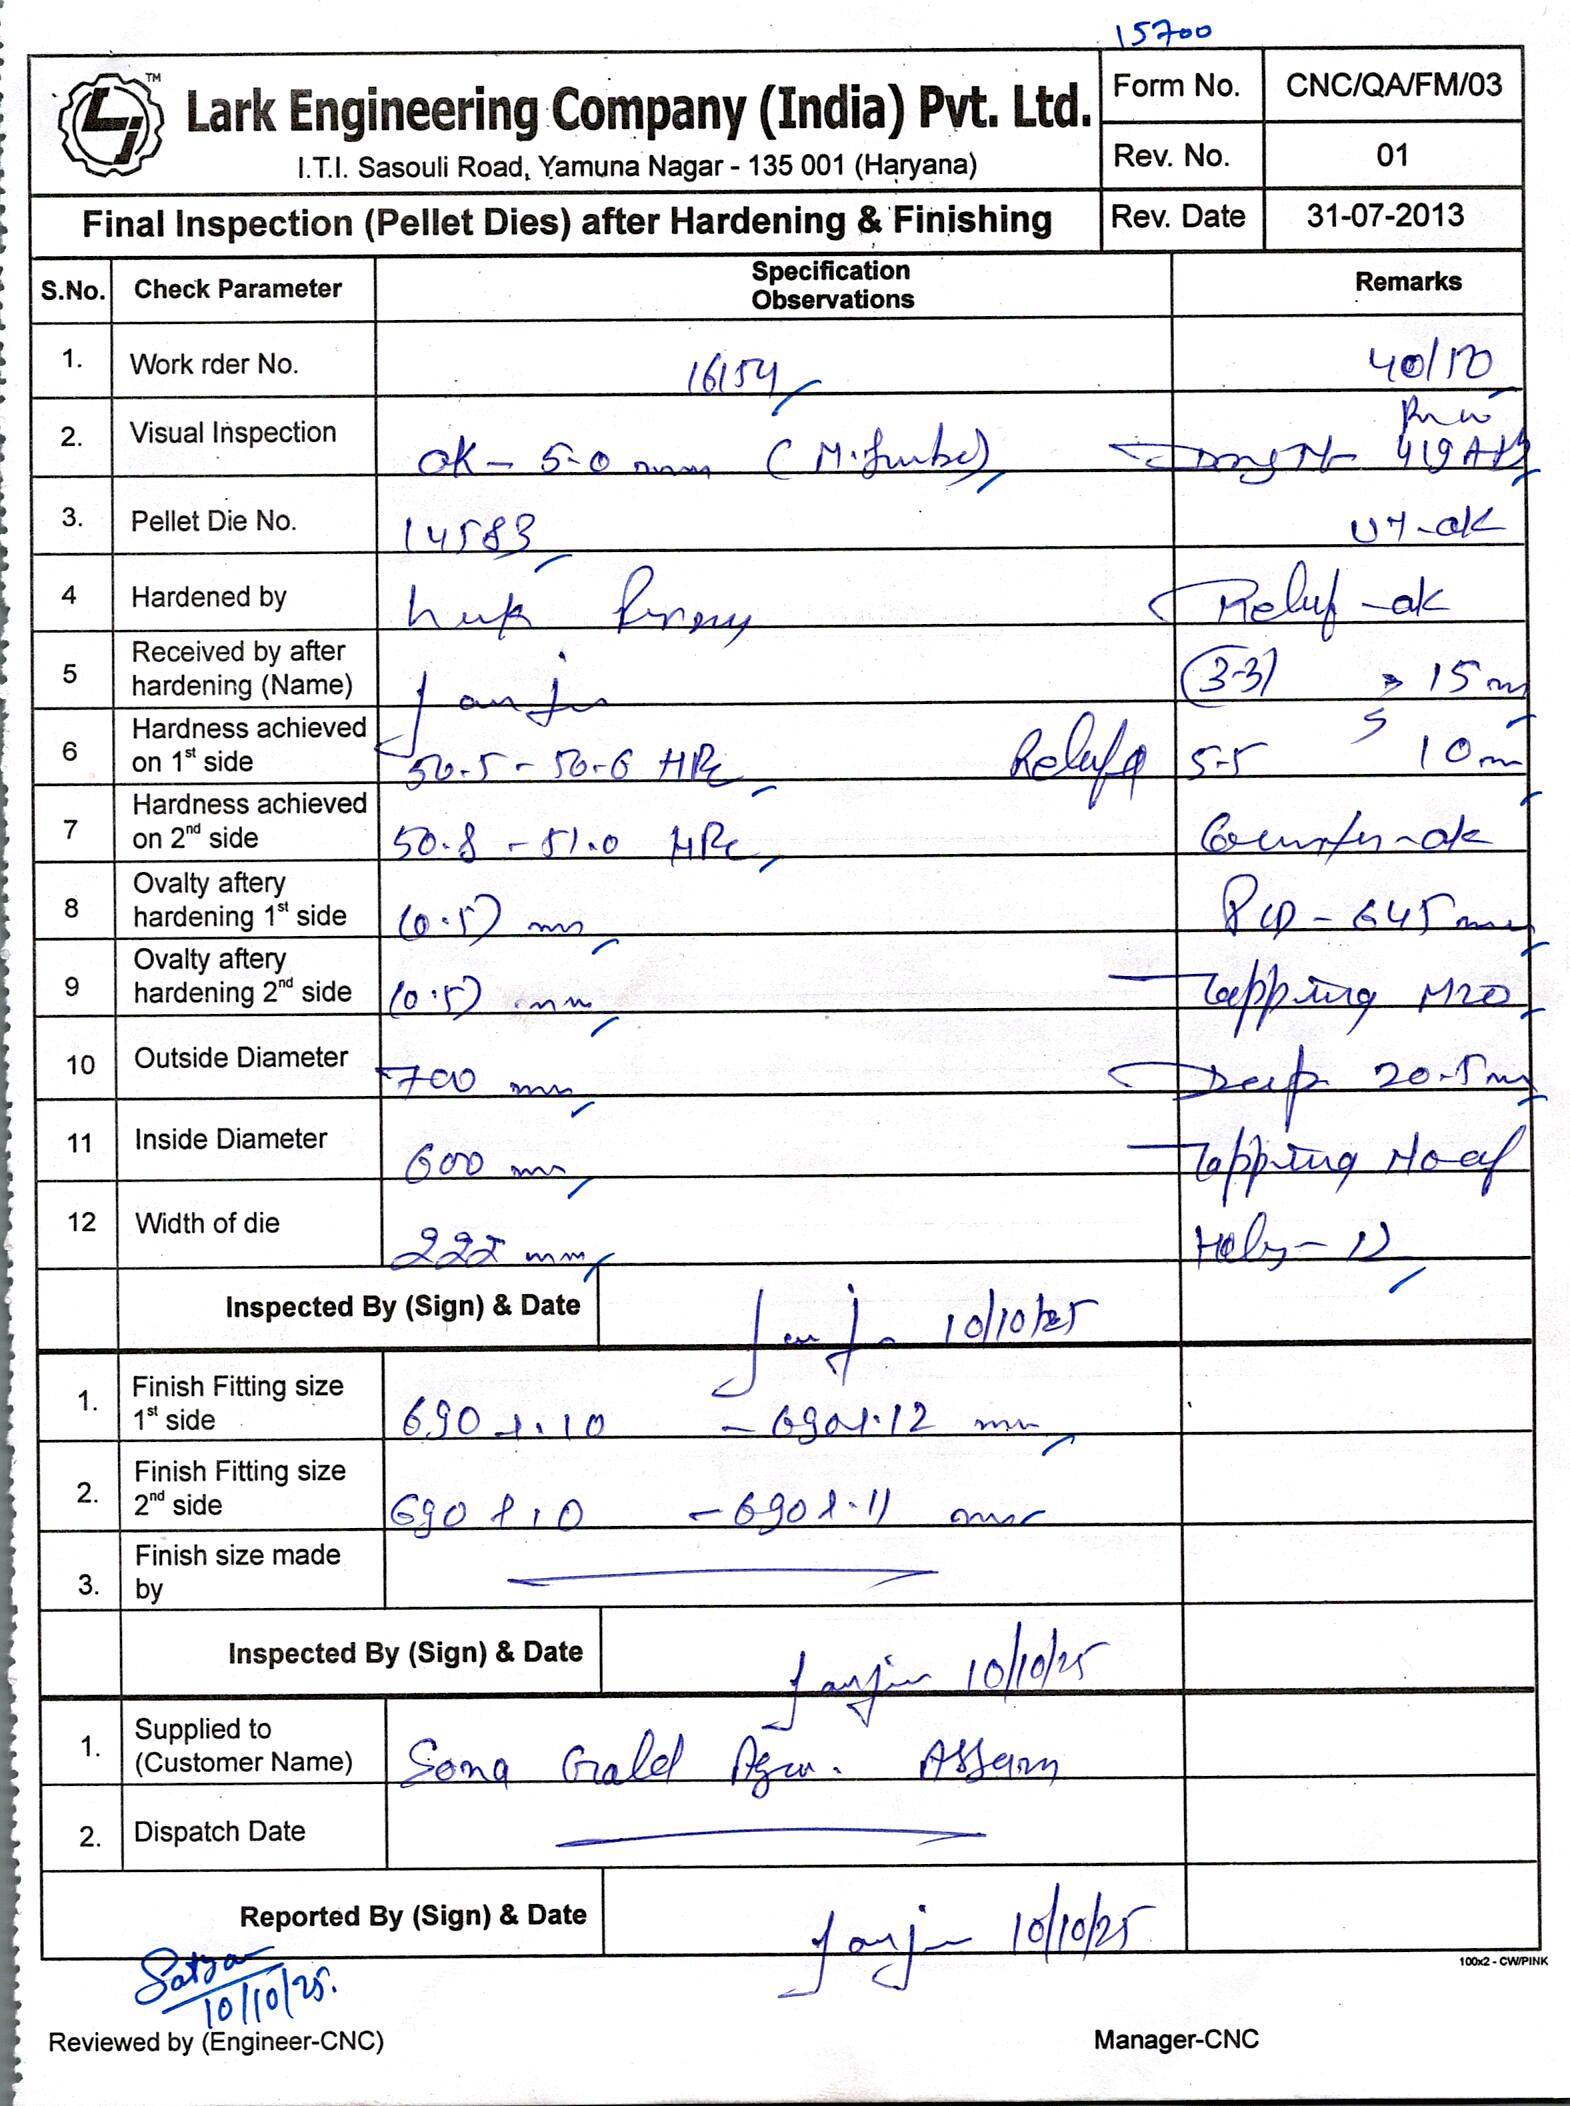 15700
Lark Engineering Company (India) Pvt. Ltd.
TM
I.T.I. Sasouli Road, Yamuna Nagar - 135 001 (Haryana)
Form No. CNC/QA/FM/03
Rev. No. 01
Final Inspection (Pellet Dies) after Hardening & Finishing
Rev. Date 31-07-2013
S.No. Check Parameter Specification Observations Remarks
1. Work rder No. 16154 40/10
2. Visual Inspection OK - 5.0 mm 419
3. Pellet Die No. 14583 UT-ok
4 Hardened by Relief - ok
5 Received by after hardening (Name) (3-3) 15 mm
6 Hardness achieved on 1st side 50.5 - 50.6 HRc Relief 5-5 10 mm
7 Hardness achieved on 2nd side 50.8 - 51.0 HRc Counter - ok
8 Ovalty aftery hardening 1st side (0.5) mm PCD - 645 mm
9 Ovalty aftery hardening 2nd side (0.5) mm Tapping M20
10 Outside Diameter 700 mm Deep 20.5 mm
11 Inside Diameter 600 mm Tapping No of
12 Width of die 222 mm Holes - 12
Inspected By (Sign) & Date 10/10/25
1. Finish Fitting size 1st side 690 +.10 - 690+.12 mm
2. Finish Fitting size 2nd side 690 +.10 - 690+.11 mm
3. Finish size made by
Inspected By (Sign) & Date 10/10/25
1. Supplied to (Customer Name) Sona Assam
2. Dispatch Date
Reported By (Sign) & Date 10/10/25
100x2 - CW/PINK
10/10/25.
Reviewed by (Engineer-CNC) Manager-CNC